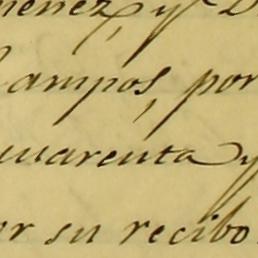 menez, y D
Campos, por
uarenta y
er su recibo.